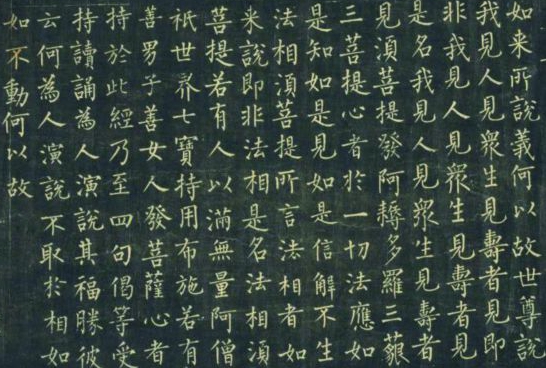 如来所說義何以故世尊說
我見人見衆生見壽者見即
非我見人見衆生見壽者見
是名我見人見衆生見壽者
見須菩提發阿耨多羅三藐
三菩提心者於一切法應如
是知如是見如是信解不生
法相須菩提所言法相者如
来說即非法相是名法相須
菩提若有人以滿無量阿僧
祇世界七寶持用布施若有
善男子善女人發菩薩心者
持於此經乃至四句偈等受
持讀誦為人演說其福勝彼
云何為人演說不取於相如
如不動何以故